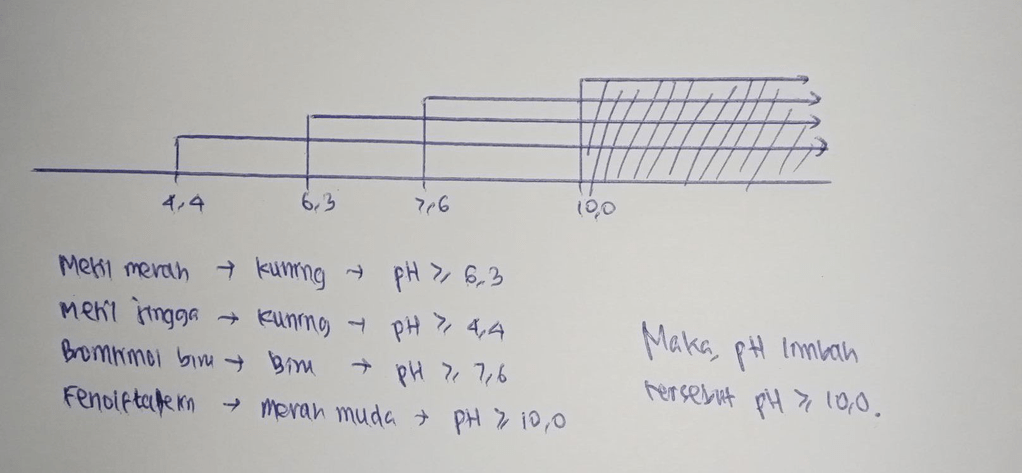 4,4 6,3 7,6 10,0
Metil merah → kuning → pH ≥ 6,3
Metil jingga → kuning → pH ≥ 4,4
Bromtimol biru → Biru → pH ≥ 7,6
Fenolftalein → merah muda → pH ≥ 10,0
Maka, pH limbah
tersebut pH ≥ 10,0.